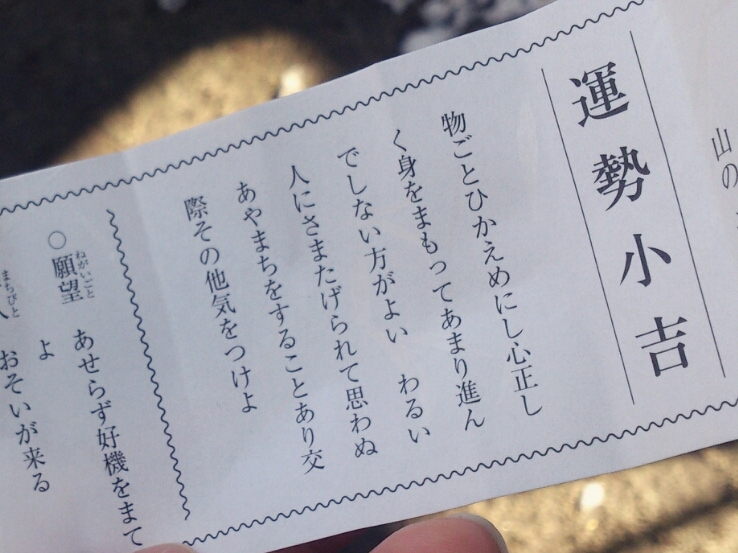 山の
運勢小吉
物ごとひかえめにし心正し
く身をまもってあまり進ん
でしない方がよい　わるい
人にさまたげられて思わぬ
あやまちをすることあり交
際その他気をつけよ
○願望 あせらず好機をまて
ねがいごと
よ
まちびと
おそいが来る